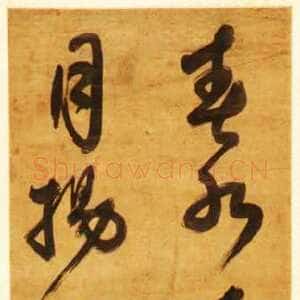 春水
月揚
Shufawang.CN